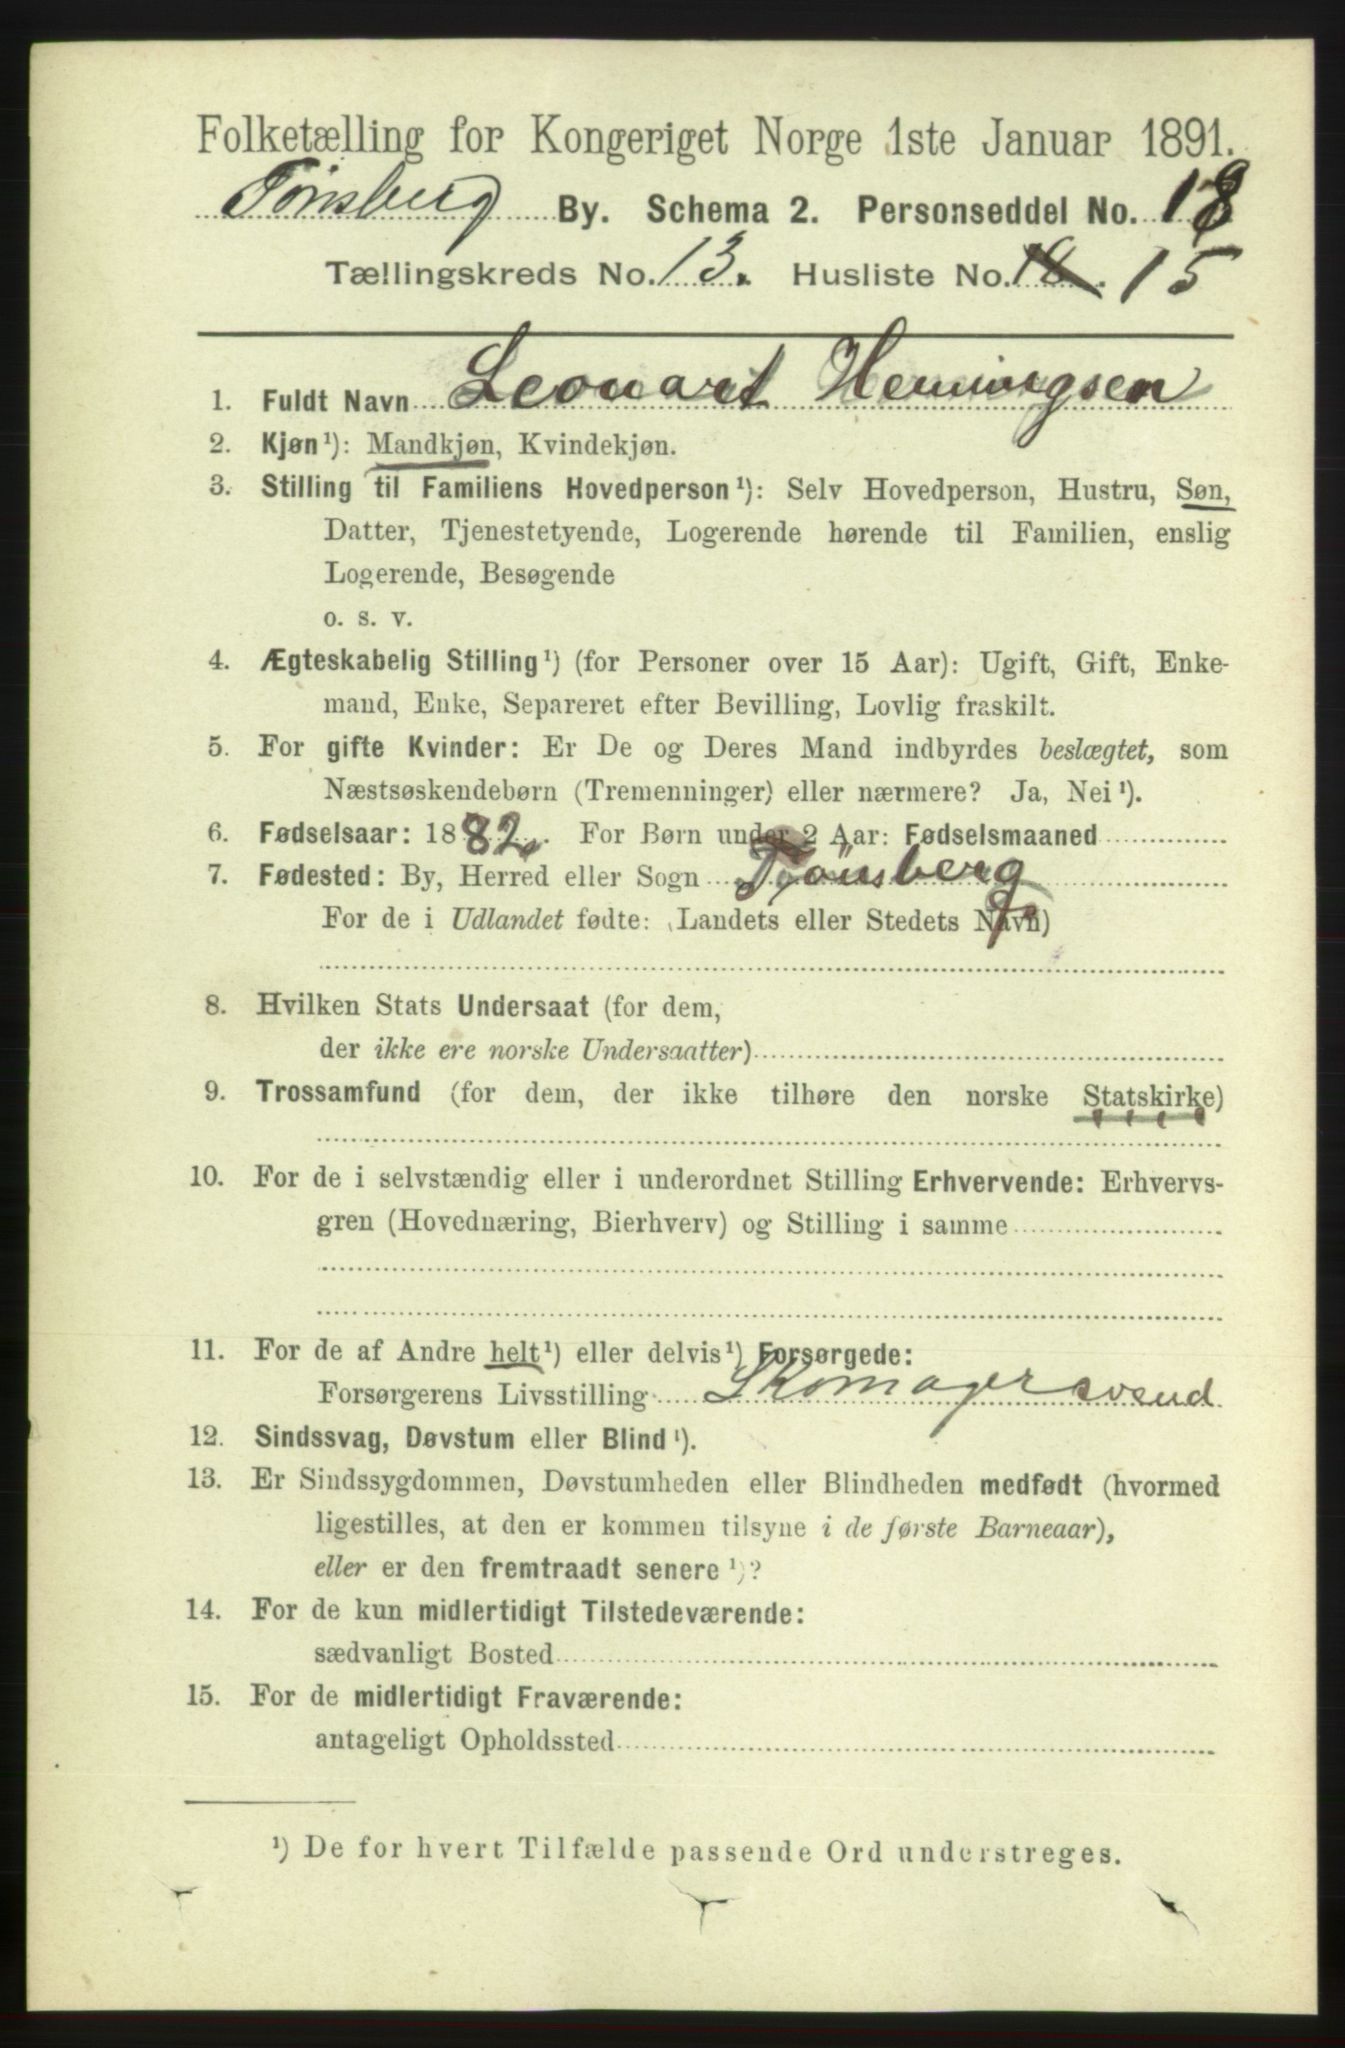 Folketælling for Kongeriget Norge 1ste Januar 1891.
Tönsberg By. Schema 2. Personseddel No. 18
Tællingskreds No. 13. Husliste No. 18. 15
1. Fuldt Navn Leonart Henningsen
2. Kjøn¹): Mandkjøn, Kvindekjøn.
3. Stilling til Familiens Hovedperson¹): Selv Hovedperson, Hustru, Søn,
Datter, Tjenestetyende, Logerende hørende til Familien, enslig
Logerende, Besøgende
o. s. v.
4. Ægteskabelig Stilling¹) (for Personer over 15 Aar): Ugift, Gift, Enke-
mand, Enke, Separeret efter Bevilling, Lovlig fraskilt.
5. For gifte Kvinder: Er De og Deres Mand indbyrdes beslægtet, som
Næstsøskendebørn (Tremenninger) eller nærmere? Ja, Nei¹).
6. Fødselsaar: 1882. For Børn under 2 Aar: Fødselsmaaned
7. Fødested: By, Herred eller Sogn Tönsberg
For de i Udlandet fødte: (Landets eller Stedets Navn)
8. Hvilken Stats Undersaat (for dem,
der ikke ere norske Undersaatter)
9. Trossamfund (for dem, der ikke tilhøre den norske Statskirke)
10. For de i selvstændig eller i underordnet Stilling Erhvervende: Erhvervs-
gren (Hovednæring, Bierhverv) og Stilling i samme
11. For de af Andre helt¹) eller delvis¹) Forsørgede:
Forsørgerens Livsstilling Skomagersvend
12. Sindssvag, Døvstum eller Blind¹).
13. Er Sindssygdommen, Døvstumheden eller Blindheden medfødt (hvormed
ligestilles, at den er kommen tilsyne i de første Barneaar),
eller er den fremtraadt senere¹)?
14. For de kun midlertidigt Tilstedeværende:
sædvanligt Bosted
15. For de midlertidigt Fraværende:
antageligt Opholdssted
¹) De for hvert Tilfælde passende Ord understreges.